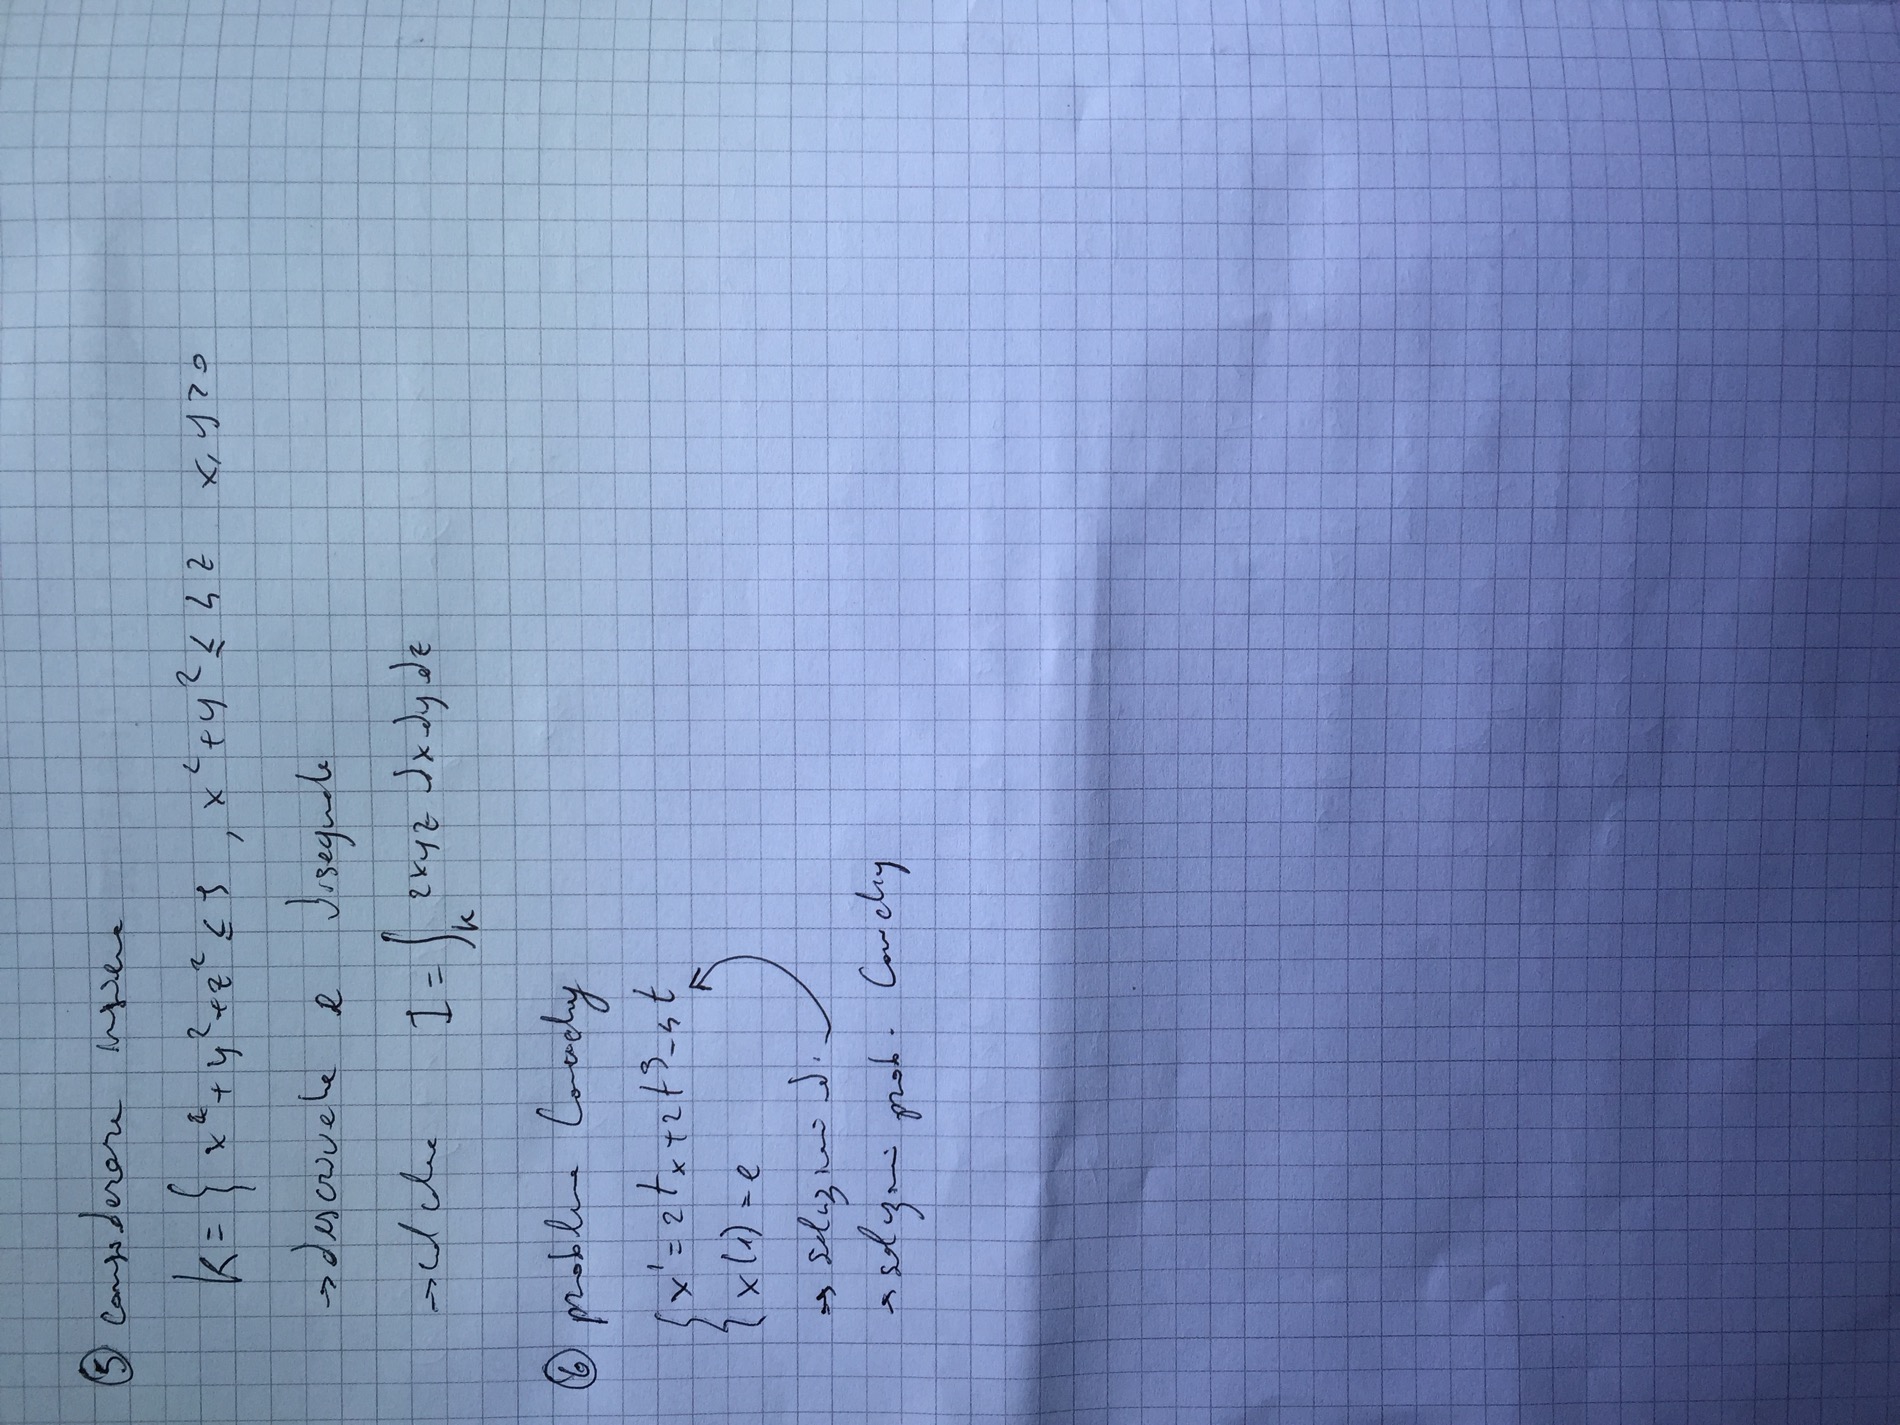 ⑤ considerare insieme
K = { x² + y² + z² ≤ 5 , x² + y² ≤ 4z x, y ≥ 0
→ descrivete e disegnate
→ calcolare I = ∫_K 2xyz dx dy dz
⑥ problema Cauchy
{ x' = 2tx + 2t³ - 4t
x(1) = e
→ soluzioni di
→ soluzioni prob. Cauchy